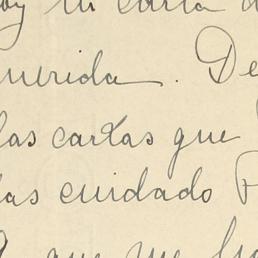 oy tu carta
querida. De
las cartas que
das cuidado
que me